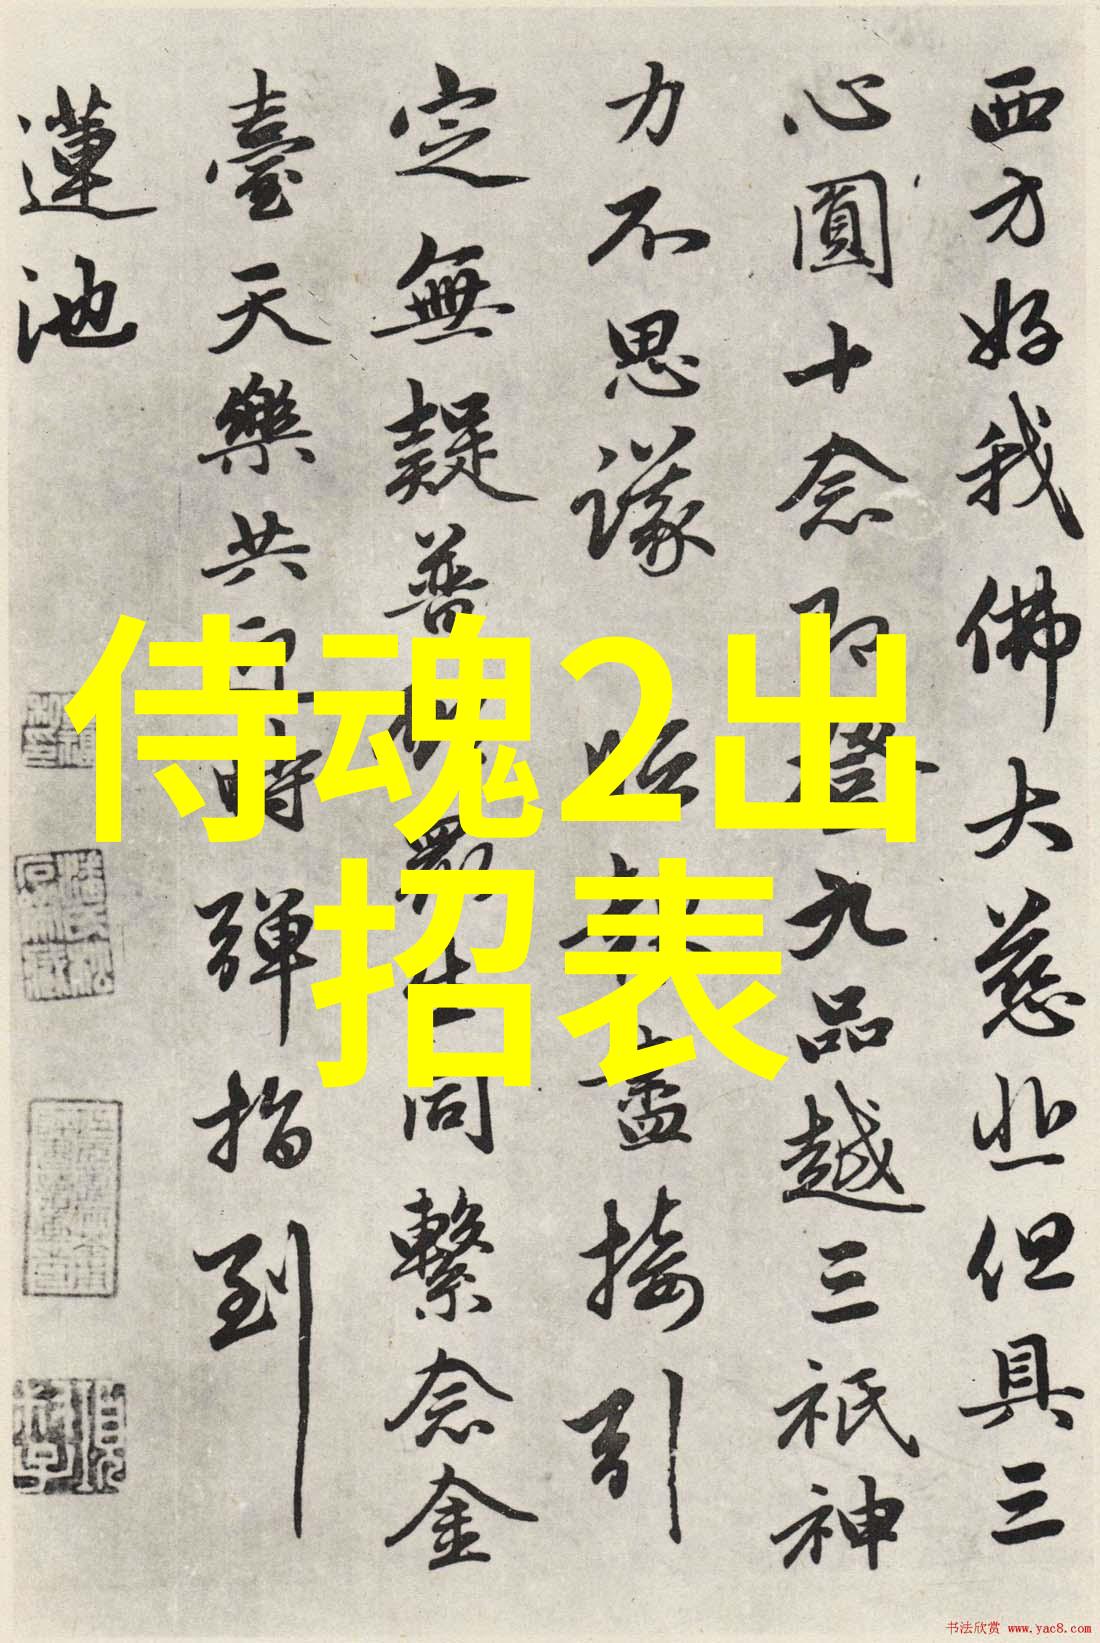 西方好我佛大慈悲但具三
心圓十念即登九品越三祇神
力不思議 盡接引
定無疑普眾生同繫念金
臺天樂共迎時彈指到
蓮池
侍魂2出
招表
书法欣赏 www.yac8.com